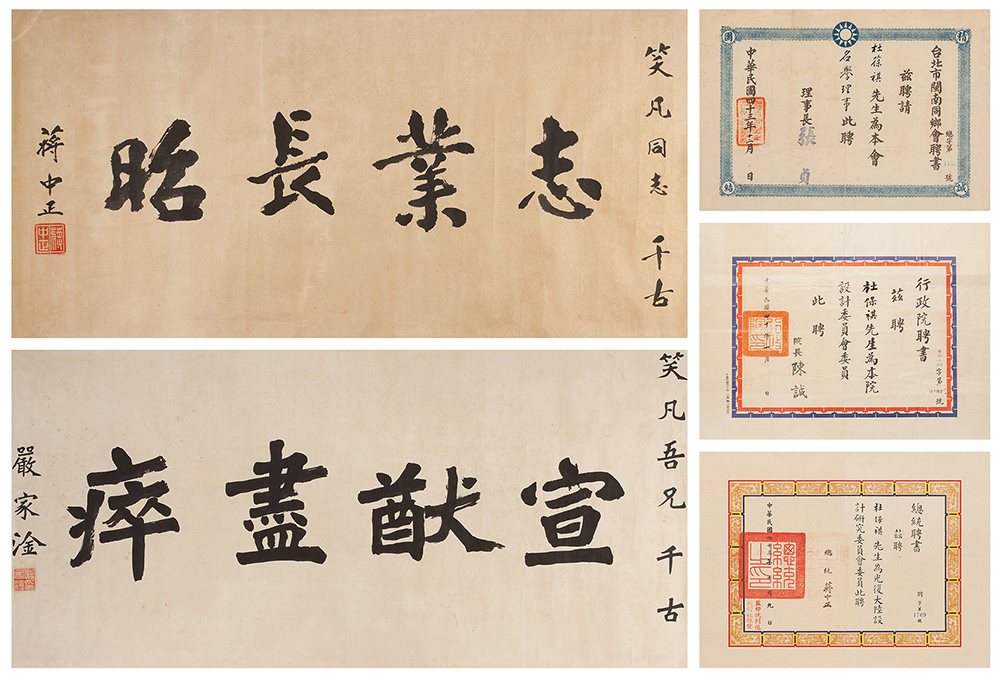 笑凡同志 千古
志業長昭
蔣中正
笑凡吾兄千古
宣猷盡瘁
嚴家淦
精誠團結
台北市閩南同鄉會聘書
總字第 號
茲聘請
杜葆祺先生為本會
名譽理事此聘
理事長 張貞
中華民國四十三年 月 日
行政院聘書
字第 號
茲聘
杜保祺先生為本院
設計委員會委員
此聘
院長 陳誠
中華民國四十 年 月 日
總統聘書
聘字第1765號
茲聘
杜保祺先生為光復大陸設
計研究委員會委員此聘
總統 蔣中正
中華民國四十 年 月九日